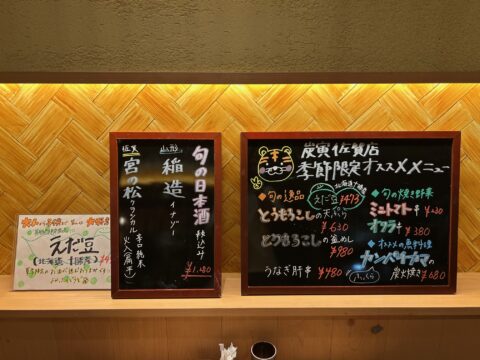 えだ豆
旬の日本酒
税込み
¥1,280
山形
稲造
イナゾー
佐賀
宮の松
クラシカル
辛口純米
火入(扁平)
炭寅佐賀店
季節限定オススメメニュー
◆旬の逸品
えだ豆¥473
とうもろこしの天ぷら
¥630
とうもろこしの釜めし
¥980
うなぎ肝串 ¥480
◆旬の焼き野菜
ミニトマト串 ¥230
オクラ串 ¥380
◆オススメの魚料理
カンパチカマの
炭火焼き ¥680